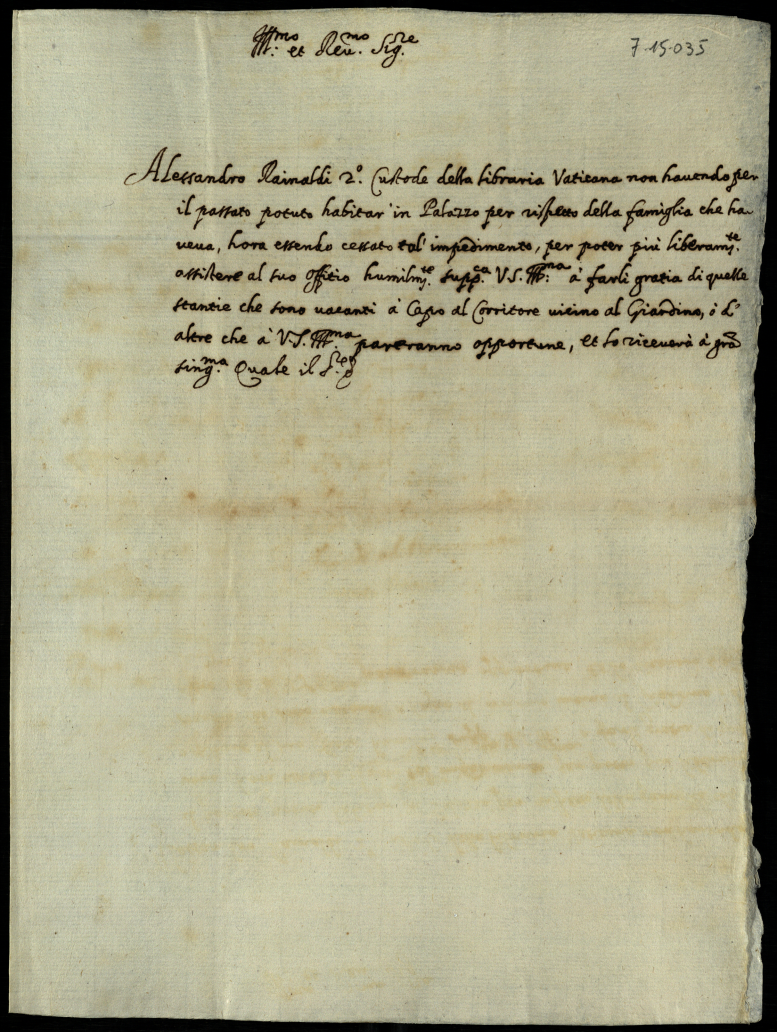 Ill:mo et Reu.mo Sig.re
7-15-035
Alessandro Rainaldi 2.o Custode della libraria Vaticana non hauendo per
il passato potuto habitar' in Palazzo per rispetto della famiglia che ha=
ueua, hora essendo cessato tal' impedimento, per poter più liberam.te
assistere al suo offitio humilm.te supp.ca V.S. Ill:ma à farli gratia di quelle
stantie che sono uacanti à Capo al Corritore uicino al Giardino, ò d'
altre che à V.S. Ill:ma parranno opportune, et lo riceuerà à gra
sing.ma Quale il S.re